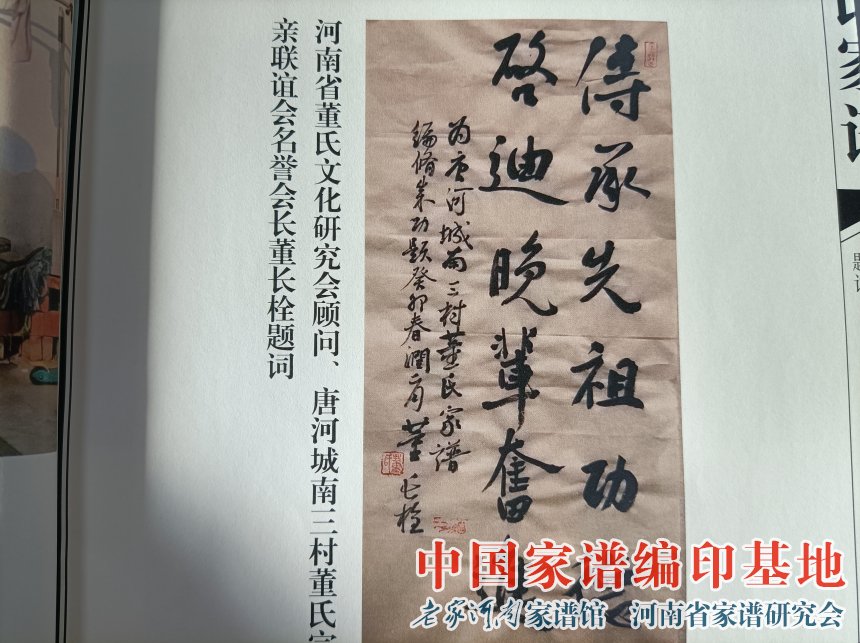 传承先祖功
启迪晚辈奋
为唐河城南三村董氏家谱
编脩成功题癸卯春润月董长栓
河南省董氏文化研究会顾问、唐河城南三村董氏家
亲联谊会名誉会长董长栓题词
家谱
题词
中国家谱编印基地
老家河南家谱馆 河南省家谱研究会